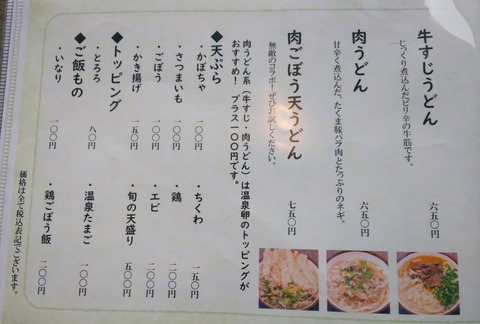 牛すじうどん
じっくり煮込んだピリ辛の牛筋です。
六五〇円
肉うどん
甘辛く煮込んだ、たくま豚バラ肉とたっぷりのネギ。
六五〇円
肉ごぼう天うどん
無敵のコラボ!ぜひお試しください。
七五〇円
肉うどん系(牛すじ・肉うどん)は温泉卵のトッピングが
おすすめ! プラス一〇〇円です。
◆天ぷら
・かぼちゃ 一〇〇円
・ちくわ 一五〇円
・さつまいも 一〇〇円
・鶏 一〇〇円
・ごぼう 一〇〇円
・エビ 二〇〇円
・かき揚げ 一五〇円
・旬の天盛り 五〇〇円
◆トッピング
・とろろ 八〇円
・温泉たまご 一〇〇円
◆ご飯もの
・いなり 一〇〇円
・鶏ごぼう飯 二〇〇円
価格は全て税込表記でございます。